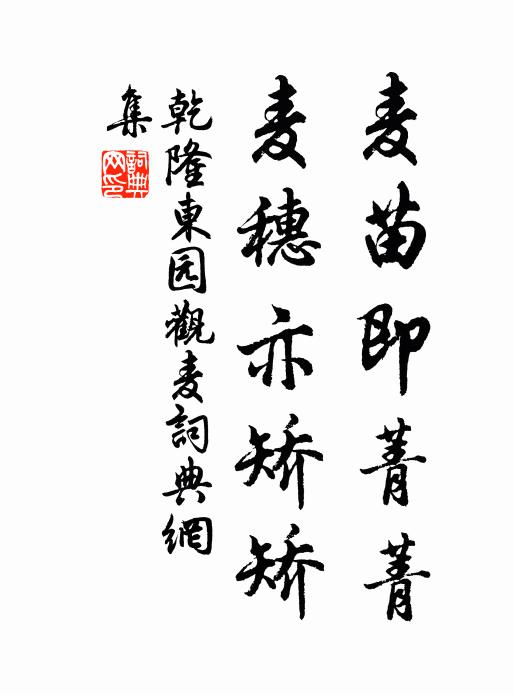 麦苗即菁菁
麦穗亦矫矫
乾隆東园觀麦詞典網
集
詞典
网印